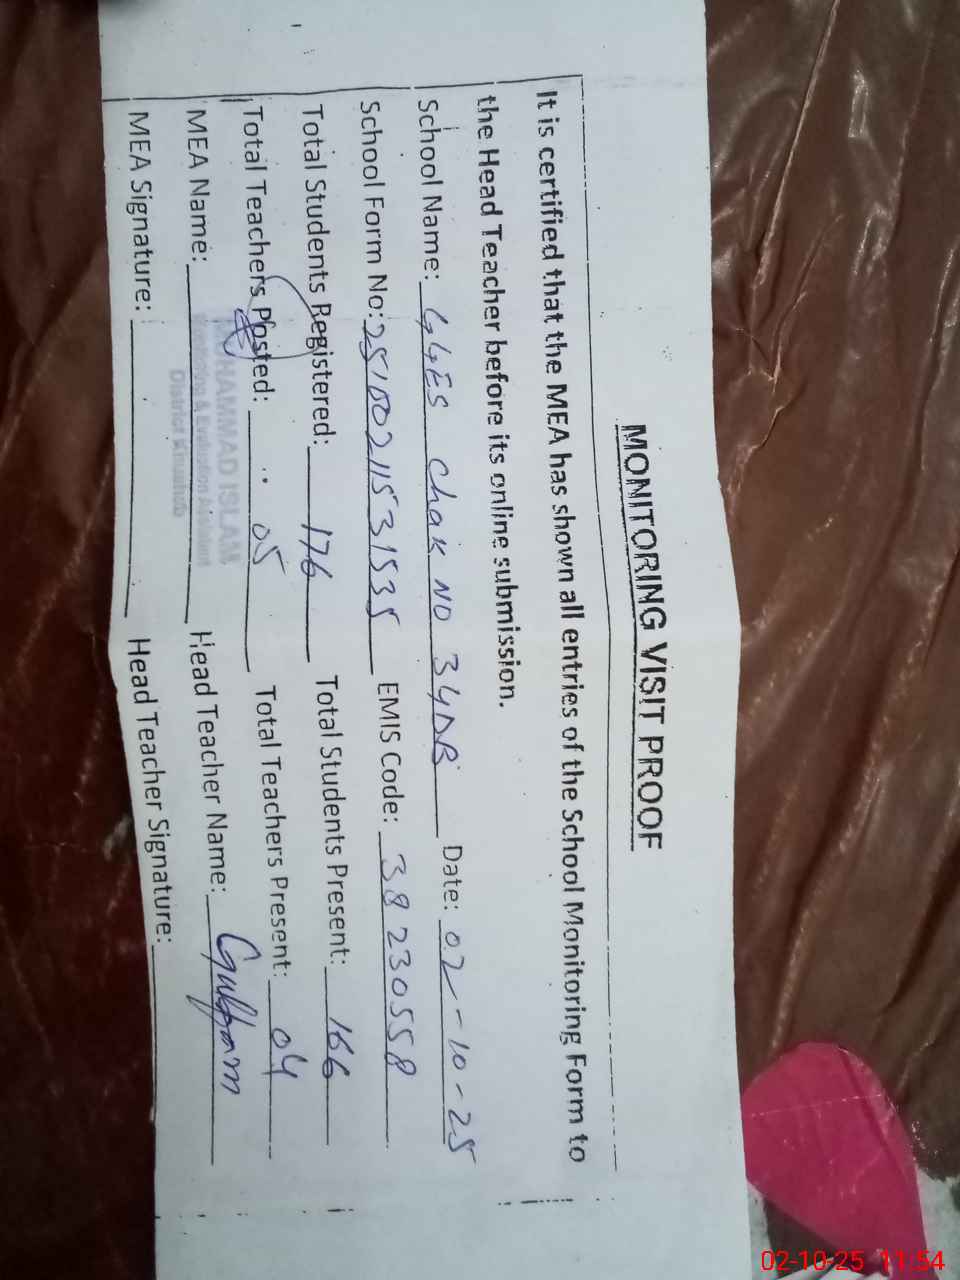 MONITORING VISIT PROOF
It is certified that the MEA has shown all entries of the School Monitoring Form to
the Head Teacher before its online submission.
School Name: GGES Chak NO 34DB Date: 02-10-25
School Form No: EMIS Code: 38230558
Total Students Registered: 176 Total Students Present: 166
Total Teachers Posted: 05 Total Teachers Present: 04
MEA Name: Head Teacher Name:
MUHAMMAD ISLAM
Monitoring & Evaluation Assistant
District Khushab
MEA Signature: Head Teacher Signature:
02-10-25 11:54